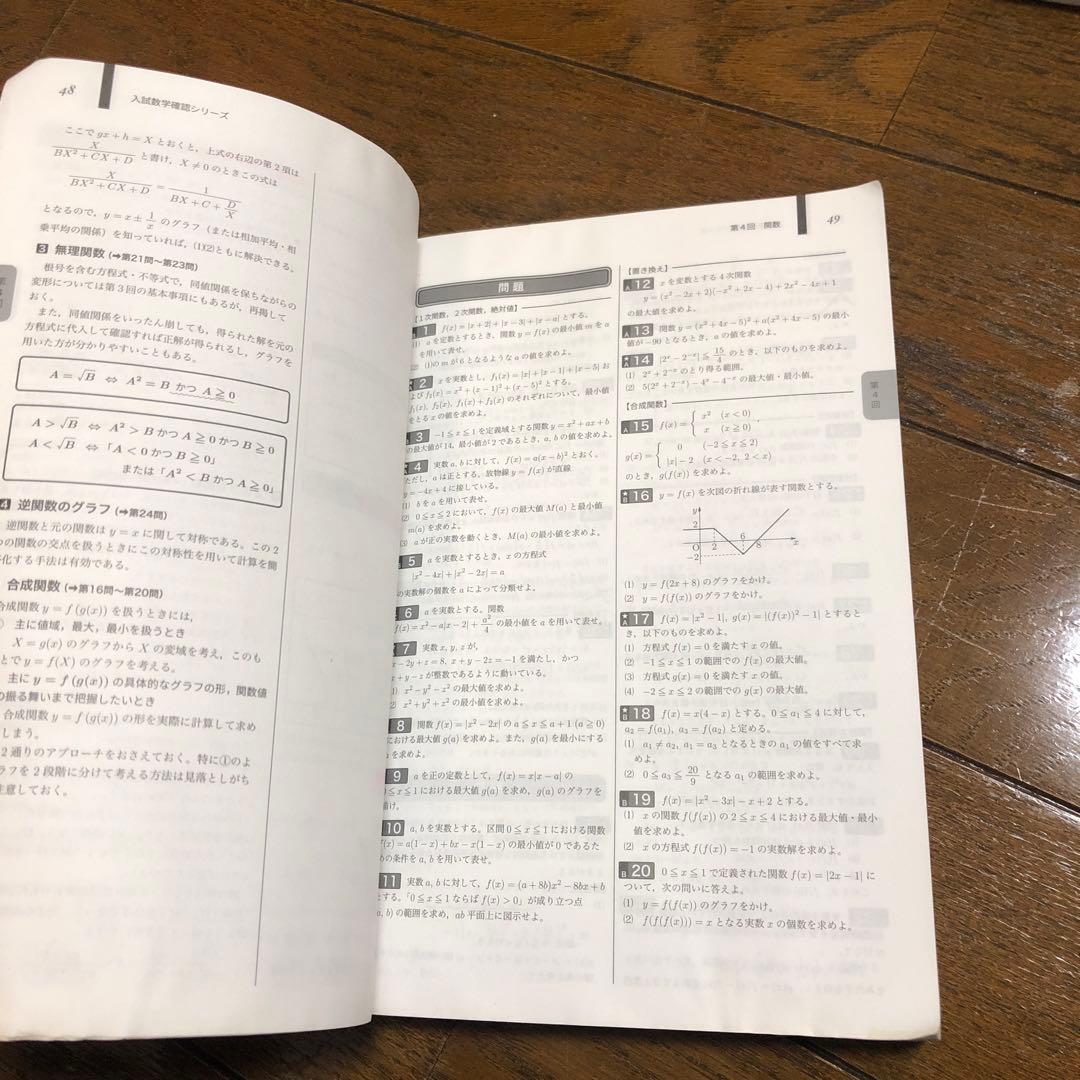 48
入試数学確認シリーズ
ここで gx+h=X とおくと，上式の右辺の第2項は
X/(BX²+CX+D) と書け，X≠0 のときこの式は
X/(BX²+CX+D) = 1/(BX+C+D/X)
となるので，y=x±1/x のグラフ（または相加平均・相
乗平均の関係）を知っていれば，(1)(2)ともに解決できる。
3 無理関数 (➡第21問〜第23問)
根号を含む方程式・不等式で，同値関係を保ちながらの
変形については第3回の基本事項にもあるが，再掲して
おく。
また，同値関係をいったん崩しても，得られた解を元の
方程式に代入して確認すれば正解が得られるし，グラフを
用いた方が分かりやすいこともある。
A=√B ⇔ A²=B かつ A≧0
A>√B ⇔ A²>B かつ A≧0 かつ B≧0
A<√B ⇔ 「A<0 かつ B≧0」
または「A²<B かつ A≧0」
4 逆関数のグラフ (➡第24問)
逆関数と元の関数は y=x に関して対称である。この2
つの関数の交点を扱うときにこの対称性を用いて計算を簡
化する手法は有効である。
合成関数 (➡第16問〜第20問)
合成関数 y=f(g(x)) を扱うときには，
主に値域，最大，最小を扱うとき
X=g(x) のグラフから X の変域を考え，このも
とで y=f(X) のグラフを考える。
主に y=f(g(x)) の具体的なグラフの形，関数値
の振る舞いまで把握したいとき
合成関数 y=f(g(x)) の形を実際に計算して求め
しまう。
2通りのアプローチをおさえておく。特に①のよ
ラフを2段階に分けて考える方法は見落としがち
注意しておく。
第4回 関数
49
問題
【1次関数，2次関数，絶対値】
1 f(x)=|x+2|+|x-3|+|x-a| とする。
(1) a を定数とするとき，関数 y=f(x) の最小値 m を a
を用いて表せ。
(2) (1)の m が 6 となるような a の値を求めよ。
2 x を実数とし，f₁(x)=|x|+|x-1|+|x-5| お
よび f₂(x)=x²+(x-1)²+(x-5)² とする。
f₁(x), f₂(x), f₁(x)+f₂(x) のそれぞれについて，最小値
をとる x の値を求めよ。
3 -1≦x≦1 を定義域とする関数 y=x²+ax+b
の最大値が 14，最小値が 2 であるとき，a, b の値を求めよ。
4 実数 a, b に対して，f(x)=a(x-b)² とおく。
ただし，a は正とする。放物線 y=f(x) が直線
y=-4x+4 に接している。
(1) b を a を用いて表せ。
(2) 0≦x≦2 において，f(x) の最大値 M(a) と最小値
m(a) を求めよ。
(3) a が正の実数を動くとき，M(a) の最小値を求めよ。
5 a を実数とするとき，x の方程式
|x²-4x|+|x²-2x|=a
の実数解の個数を a によって分類せよ。
6 a を実数とする。関数
f(x)=x²-a|x-2|+a²/4 の最小値を a を用いて表せ。
7 実数 x, y, z が，
x-2y+z=8, x+y-2z=-1 を満たし，かつ
x+y-z が整数であるように動いている。
1) x²-y²-z² の最大値を求めよ。
2) x²+y²+z² の最小値を求めよ。
8 関数 f(x)=|x²-2x| の a≦x≦a+1 (a≧0)
における最大値 g(a) を求めよ。また，g(a) を最小にする
を求めよ。
9 a を正の定数として，f(x)=x|x-a| の
0≦x≦1 における最大値 g(a) を求め，g(a) のグラフを
描け。
10 a, b を実数とする。区間 0≦x≦1 における関数
f(x)=a(1-x)+bx-x(1-x) の最小値が 0 であるた
めの条件を a, b を用いて表せ。
11 実数 a, b に対して，f(x)=(a+8b)x²-8bx+b
とする。「0≦x≦1 ならば f(x)>0」が成り立つ点
a, b) の範囲を求め，ab 平面上に図示せよ。
【置き換え】
A 12 x を変数とする4次関数
y=(x²-2x+2)(-x²+2x-4)+2x²-4x+1
の最大値を求めよ。
A 13 関数 y=(x²+4x-5)²+a(x²+4x-5) の最小
値が -90 となるとき，a の値を求めよ。
★A 14 |2ˣ-2⁻ˣ|≦15/4 のとき，以下のものを求めよ。
(1) 2ˣ+2⁻ˣ のとり得る範囲。
(2) 5(2ˣ+2⁻ˣ)-4ˣ-4⁻ˣ の最大値・最小値。
【合成関数】
A 15 f(x)={ x² (x<0)
x (x≧0) ,
g(x)={ 0 (-2≦x≦2)
|x|-2 (x<-2, 2<x)
のとき，g(f(x)) を求めよ。
★B 16 y=f(x) を次図の折れ線が表す関数とする。
y
2
O
2
6
8
x
-2
(1) y=f(2x+8) のグラフをかけ。
(2) y=f(f(x)) のグラフをかけ。
★A 17 f(x)=|x²-1|, g(x)=|(f(x))²-1| とすると
き，以下のものを求めよ。
(1) 方程式 f(x)=0 を満たす x の値。
(2) -1≦x≦1 の範囲での f(x) の最大値。
(3) 方程式 g(x)=0 を満たす x の値。
(4) -2≦x≦2 の範囲での g(x) の最大値。
★B 18 f(x)=x(4-x) とする。0≦a₁≦4 に対して，
a₂=f(a₁), a₃=f(a₂) と定める。
(1) a₁≠a₂, a₁=a₃ となるときの a₁ の値をすべて求
めよ。
(2) 0≦a₃≦20/9 となる a₁ の範囲を求めよ。
B 19 f(x)=|x²-3x|-x+2 とする。
(1) x の関数 f(f(x)) の 2≦x≦4 における最大値・最小
値を求めよ。
(2) x の方程式 f(f(x))=-1 の実数解を求めよ。
B 20 0≦x≦1 で定義された関数 f(x)=|2x-1| に
ついて，次の問いに答えよ。
(1) y=f(f(x)) のグラフをかけ。
(2) f(f(f(x)))=x となる実数 x の個数を求めよ。
第4回